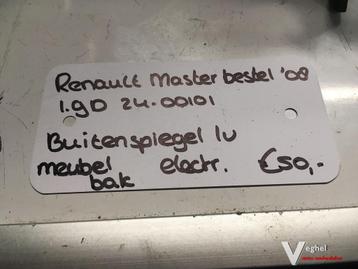 Renault Master bestel '08
1.9D 24-00101
Buitenspiegel lv
meubel electr. €50,-
bak
Veghel